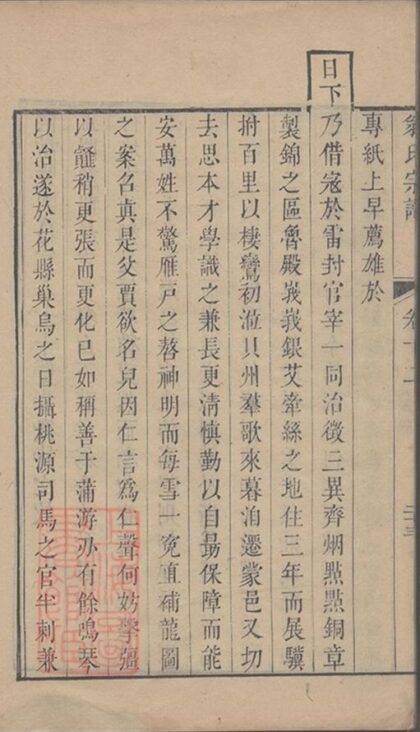 氏宗譜 卷十二
專紙上早薦雄於
日下乃借寇於雷封官宰一同治徵三異齊烟點點銅章
製錦之區魯殿峩峩銀艾牽絲之地住三年而展驥
拊百里以棲鸞初涖貝州羣歌來暮洎遷蒙邑又切
去思本才學識之兼長更清慎勤以自勗保障而能
安萬姓不驚雁戸之嗸神明而每雪一寃直補龍圖
之案名真是父賈欲名兒因仁言爲仁聲何妨學彊
以稍更張而更化已如稱善于蒲游刃有餘鳴琴
以治遂於花縣巢烏之日攝桃源司馬之官半刺兼